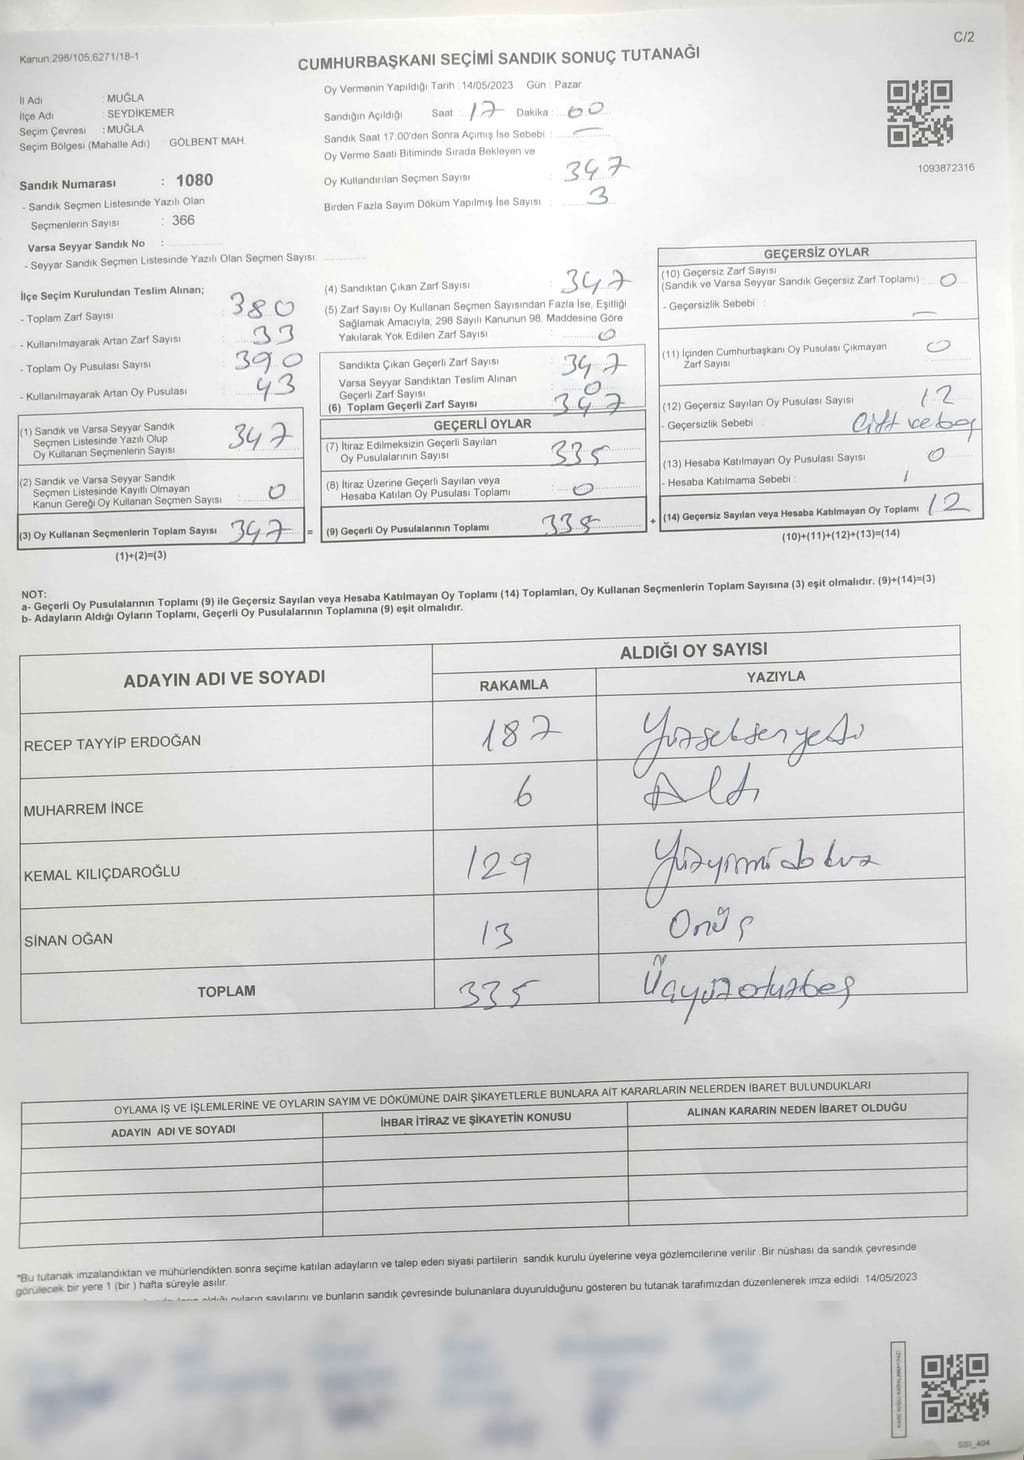 Kanun:298/105,6271/18-1
C/2
CUMHURBAŞKANI SEÇİMİ SANDIK SONUÇ TUTANAĞI
İl Adı : MUĞLA
İlçe Adı : SEYDİKEMER
Seçim Çevresi : MUĞLA
Seçim Bölgesi (Mahalle Adı) : GÖLBENT MAH.
Sandık Numarası : 1080
- Sandık Seçmen Listesinde Yazılı Olan
Seçmenlerin Sayısı : 366
Varsa Seyyar Sandık No :
- Seyyar Sandık Seçmen Listesinde Yazılı Olan Seçmen Sayısı:
Oy Vermenin Yapıldığı Tarih : 14/05/2023 Gün : Pazar
Sandığın Açıldığı Saat : 17 Dakika : 00
Sandık Saat 17.00'den Sonra Açımış İse Sebebi : —
Oy Verme Saati Bitiminde Sırada Bekleyen ve
Oy Kullandırılan Seçmen Sayısı : 347
Birden Fazla Sayım Döküm Yapılmış İse Sayısı : 3
1093872316
İlçe Seçim Kurulundan Teslim Alınan;
- Toplam Zarf Sayısı : 380
- Kullanılmayarak Artan Zarf Sayısı : 33
- Toplam Oy Pusulası Sayısı : 390
- Kullanılmayarak Artan Oy Pusulası : 43
(1) Sandık ve Varsa Seyyar Sandık
Seçmen Listesinde Yazılı Olup
Oy Kullanan Seçmenlerin Sayısı : 347
(2) Sandık ve Varsa Seyyar Sandık
Seçmen Listesinde Kayıtlı Olmayan
Kanun Gereği Oy Kullanan Seçmen Sayısı : 0
(3) Oy Kullanan Seçmenlerin Toplam Sayısı 347 =
(1)+(2)=(3)
(4) Sandıktan Çıkan Zarf Sayısı : 347
(5) Zarf Sayısı Oy Kullanan Seçmen Sayısından Fazla İse, Eşitliği
Sağlamak Amacıyla; 298 Sayılı Kanunun 98. Maddesine Göre
Yakılarak Yok Edilen Zarf Sayısı : 0
Sandıkta Çıkan Geçerli Zarf Sayısı : 347
Varsa Seyyar Sandıktan Teslim Alınan
Geçerli Zarf Sayısı : 0
(6) Toplam Geçerli Zarf Sayısı : 347
GEÇERLİ OYLAR
(7) İtiraz Edilmeksizin Geçerli Sayılan
Oy Pusulalarının Sayısı : 335
(8) İtiraz Üzerine Geçerli Sayılan veya
Hesaba Katılan Oy Pusulası Toplamı : 0
(9) Geçerli Oy Pusulalarının Toplamı : 335 +
GEÇERSİZ OYLAR
(10) Geçersiz Zarf Sayısı
(Sandık ve Varsa Seyyar Sandık Geçersiz Zarf Toplamı) : 0
- Geçersizlik Sebebi : —
(11) İçinden Cumhurbaşkanı Oy Pusulası Çıkmayan
Zarf Sayısı : 0
(12) Geçersiz Sayılan Oy Pusulası Sayısı : 12
- Geçersizlik Sebebi : Çift ve boş
(13) Hesaba Katılmayan Oy Pusulası Sayısı : 0
- Hesaba Katılmama Sebebi : /
(14) Geçersiz Sayılan veya Hesaba Katılmayan Oy Toplamı 12
(10)+(11)+(12)+(13)=(14)
NOT:
a- Geçerli Oy Pusulalarının Toplamı (9) ile Geçersiz Sayılan veya Hesaba Katılmayan Oy Toplamı (14) Toplamları, Oy Kullanan Seçmenlerin Toplam Sayısına (3) eşit olmalıdır. (9)+(14)=(3)
b- Adayların Aldığı Oyların Toplamı, Geçerli Oy Pusulalarının Toplamına (9) eşit olmalıdır.
ADAYIN ADI VE SOYADI
ALDIĞI OY SAYISI
RAKAMLA YAZIYLA
RECEP TAYYİP ERDOĞAN 187 Yüzseksenyedi
MUHARREM İNCE 6 Altı
KEMAL KILIÇDAROĞLU 129 Yüzyirmidokuz
SİNAN OĞAN 13 Onüç
TOPLAM 335 Üçyüzotuzbeş
OYLAMA İŞ VE İŞLEMLERİNE VE OYLARIN SAYIM VE DÖKÜMÜNE DAİR ŞİKAYETLERLE BUNLARA AİT KARARLARIN NELERDEN İBARET BULUNDUKLARI
ADAYIN ADI VE SOYADI İHBAR İTİRAZ VE ŞİKAYETİN KONUSU ALINAN KARARIN NEDEN İBARET OLDUĞU
"Bu tutanak imzalandıktan ve mühürlendikten sonra seçime katılan adayların ve talep eden siyasi partilerin sandık kurulu üyelerine veya gözlemcilerine verilir .Bir nüshası da sandık çevresinde
görülecek bir yere 1 (bir ) hafta süreyle asılır.
aldığı oyların sayılarını ve bunların sandık çevresinde bulunanlara duyurulduğunu gösteren bu tutanak tarafımızdan düzenlenerek imza edildi. 14/05/2023
SSI_404